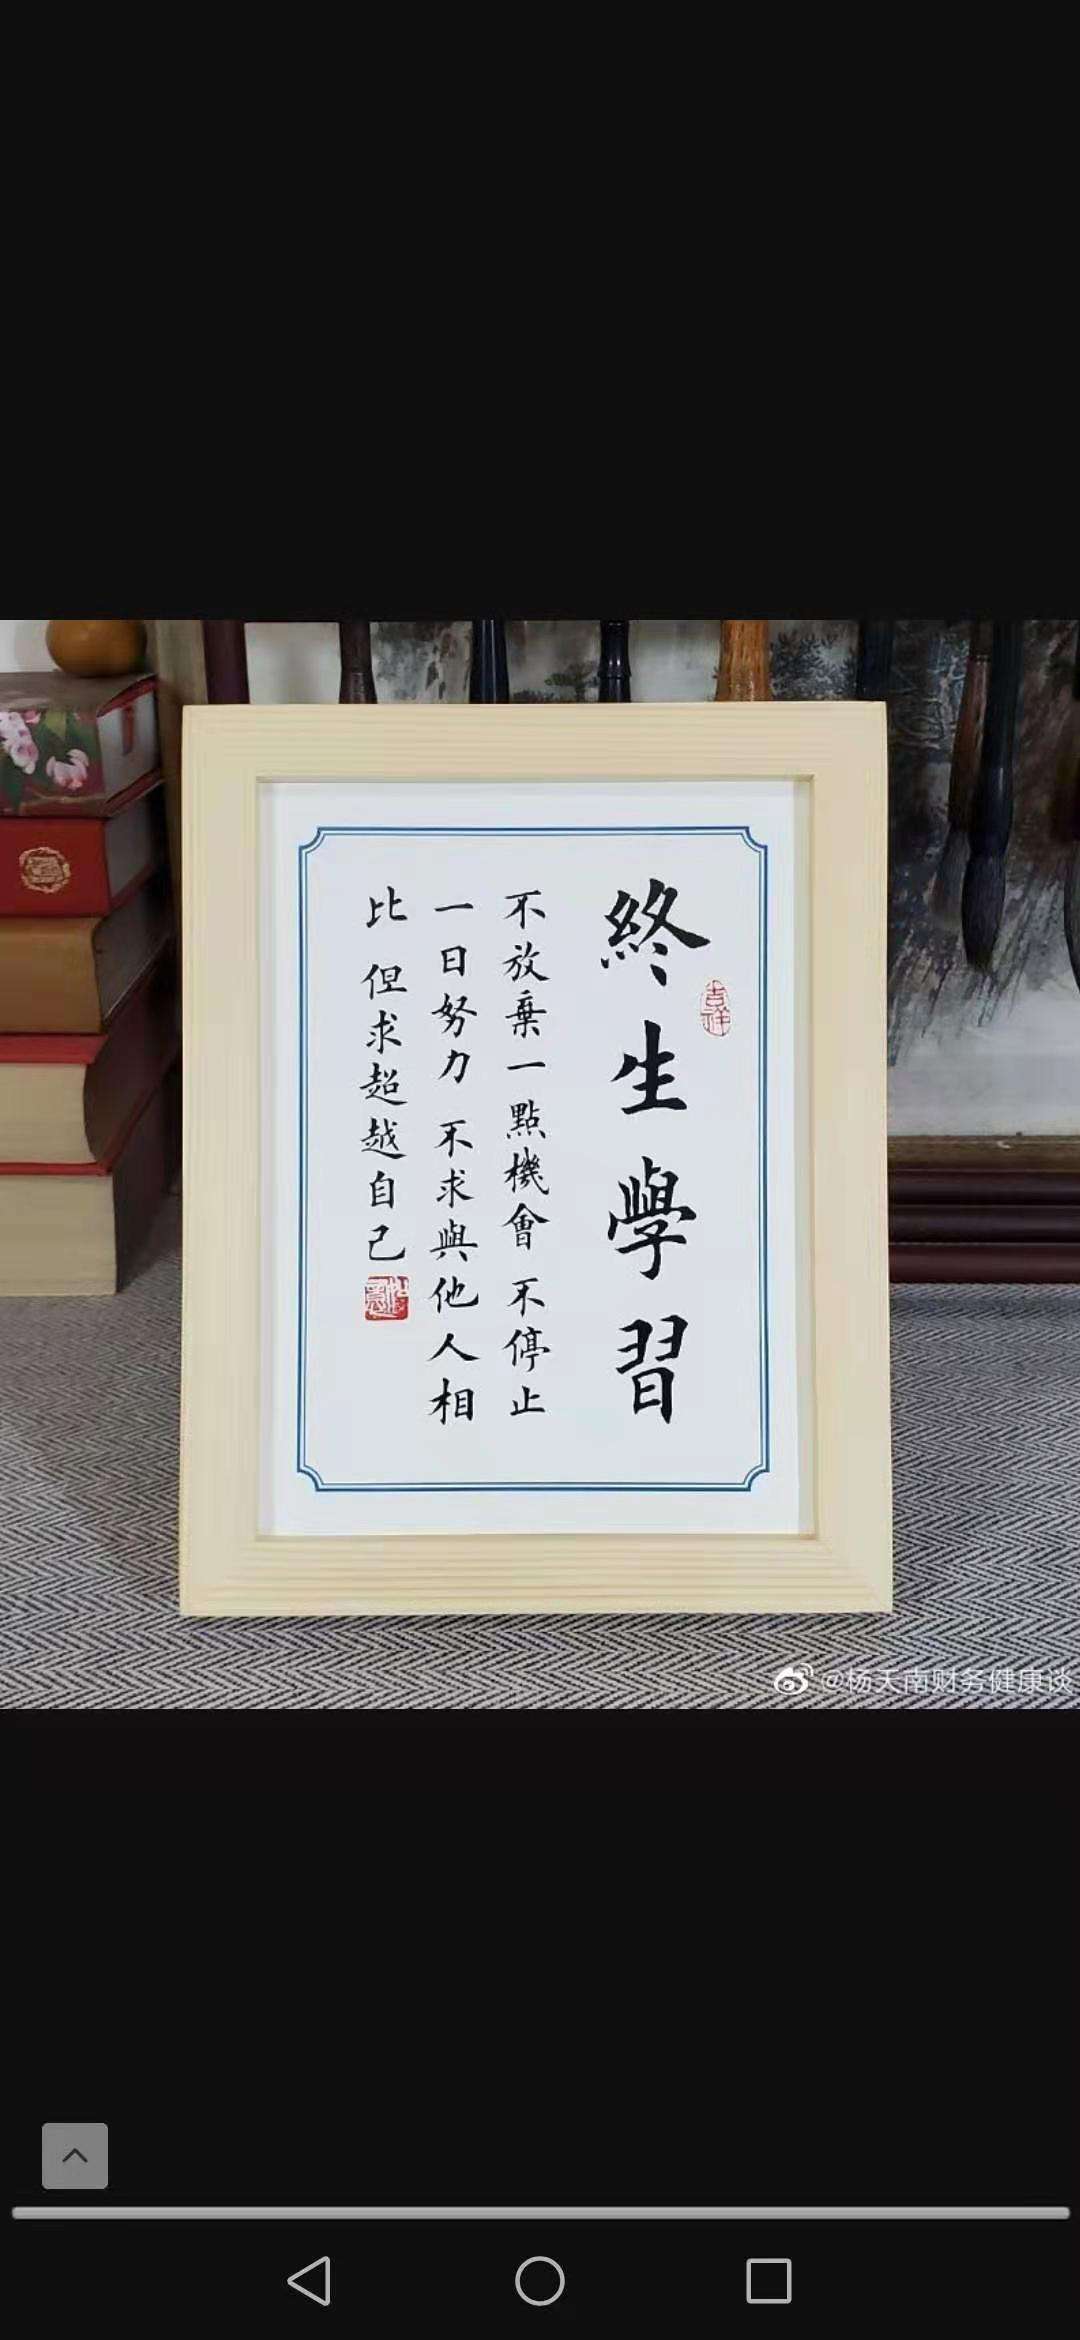 終生學習
吉祥
不放棄一點機會 不停止
一日努力 不求與他人相
比 但求超越自己
@杨天南财务健康谈